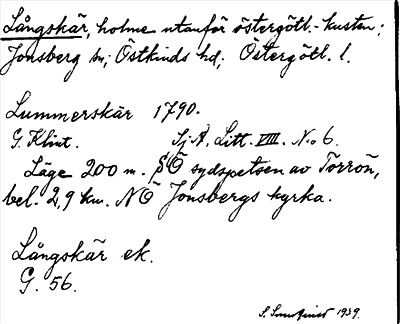 Långskär, holme utanför östergötl.-kusten;
Jonsberg sn; Östkinds hd; Östergötl. l.
Lummerskär 1790.
G. Klint. Sj. A. Litt. VIII. No 6.
Läge 200 m. SÖ sydspetsen av Torrön,
bel. 2,9 km. NÖ Jonsbergs kyrka.
Långskär ek.
G. 56.
S. 1939.